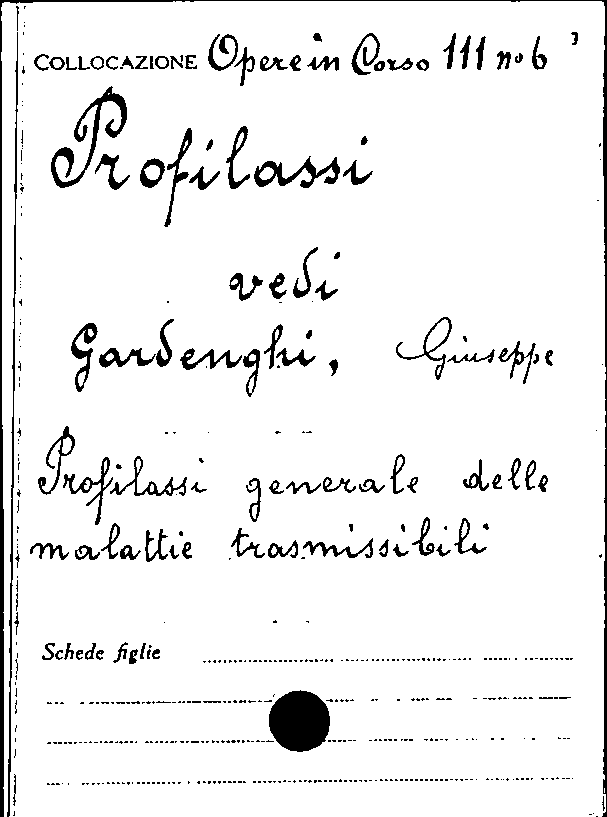 COLLOCAZIONE Opere in Corso 111 no 6 3
Profilassi
vedi
Gardenghi, Giuseppe
Profilassi generale delle
malattie trasmissibili
Schede figlie